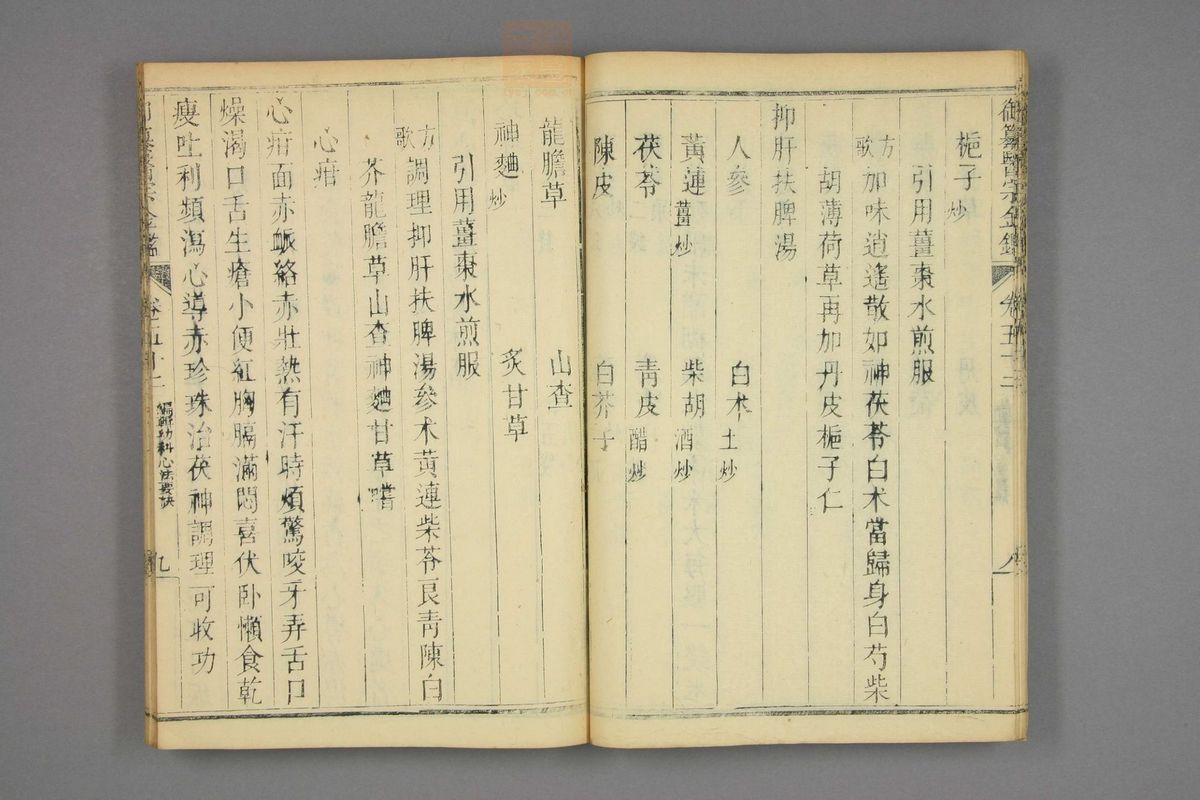 御纂醫宗金鑑 卷五十二
梔子炒
引用薑棗水煎服
方歌 加味逍遙散如神茯苓白朮當歸身白芍柴
胡薄荷草再加丹皮梔子仁
抑肝扶脾湯
人參 白朮土炒
黃連薑炒 柴胡酒炒
茯苓 青皮醋炒
陳皮 白芥子
龍膽草 山查
神麯炒 炙甘草
引用薑棗水煎服
方歌 調理抑肝扶脾湯參朮黃連柴苓良青陳白
芥龍膽草山查神麯甘草嚐
心疳
心疳面赤脈絡赤壯熱有汗時煩驚咬牙弄舌口
燥渴口舌生瘡小便紅胸膈滿悶喜伏卧懶食乾
瘦吐利頻瀉心導赤珍珠治茯神調理可收功
御纂醫宗金鑑 卷五十二 編輯幼科心法要訣 九